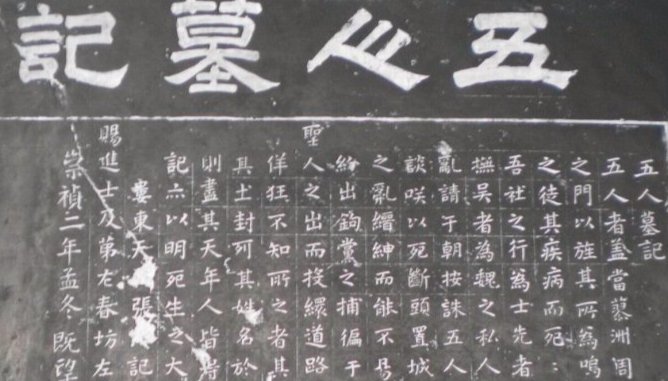 五人墓記
五人墓記
五人者蓋當蓼洲周
之門以旌其所為嗚
之徒其疾病而死
吾社之行為士先者
撫吳者為魏之私人
亂請于朝按誅五人
談咲以死斷頭置城
之亂縉紳而能不易
紛出鉤黨之捕徧于
聖人之出而投繯道路
佯狂不知所之者其
其土封列其姓名於
則盡其天年人皆得
記亦以明死生之大
婁東天張記
賜進士及第左春坊左
崇禎二年孟冬既望